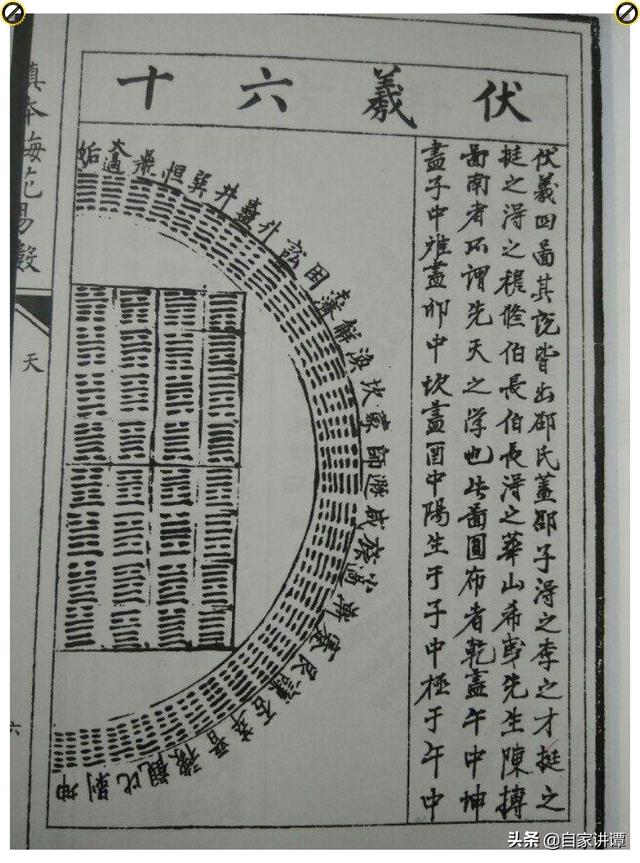 伏羲六十
伏羲四圖其說皆出邵氏蓋邵子得之李之才挺之
挺之得之穆修伯長伯長得之華山希夷先生陳摶
圖南者所謂先天之學也此圖圓布者乾盡午中坤
盡子中離盡卯中坎盡酉中陽生于子中極于午中
姤 大過 鼎 恒 巽 井 蠱 升 訟 困 未濟 解 渙 坎 蒙 師 遯 咸 旅 小過 漸 蹇 艮 謙 否 萃 晉 豫 觀 比 剝 坤
本梅花易數
天
六
头条 @自家讲谭